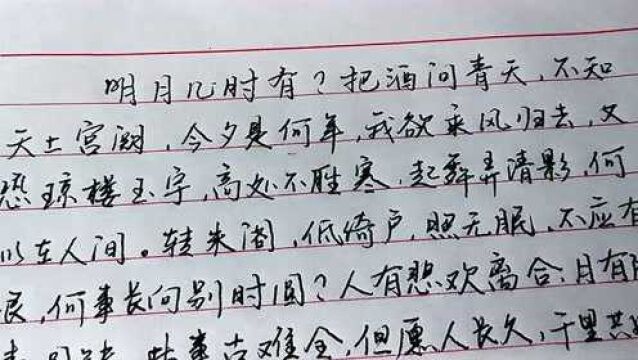 明月几时有？把酒问青天，不知
天上宫阙，今夕是何年，我欲乘风归去，又
恐琼楼玉宇，高处不胜寒，起舞弄清影，何
似在人间。转朱阁，低绮户，照无眠，不应有
恨，何事长向别时圆？人有悲欢离合，月有阴
事古难全，但愿人长久，千里共